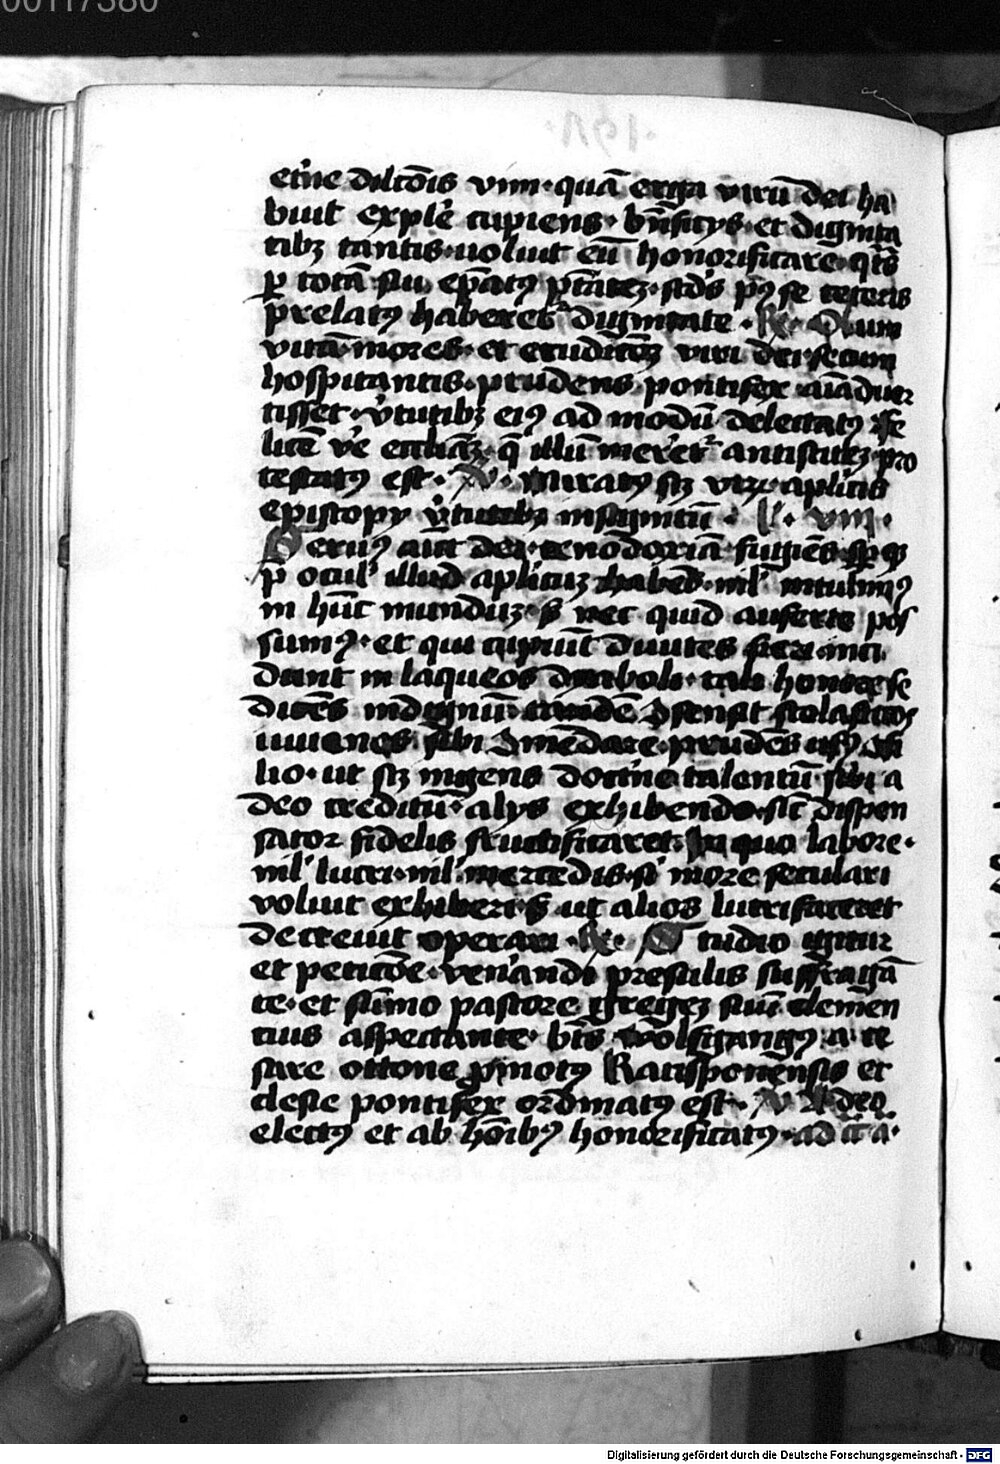 00117380
et̄ne dilcōis vim · quā erga virū dei ha
buit explē cupiens · bn̄ficijs · et dignita
tibꝫ tantis · uoluit eū honorificare · qt̄s
ꝑ totā sui ep̄atꝰ ptātēꝫ · scd̄s pꝰ se ceteris
prelatꝰ haberet̉ dignitate · R̷ · Dum
vitā · mores · et eruditōeꝫ viri dei · secum
hospitantis · prudens pontifex · aīaduer
tisset · v̓tutibꝫ eiꝰ ad modū delectatꝰ · fe
licē v̓e ecclīaꝫ · q̄ illū meret̉ antistitēꝫ · pro
testatꝰ est · V̷ · Miratꝰ sꝫ viꝝ · aplīcis
episcopꝰ v̓tutibꝫ insignitū · L̓ · viii ·
Seruꝰ aūt dei · cenodoxiā fugiēs · sꝑ qꝫ
p̄ oculꝭ illud aplīcuꝫ habēs · nil̓ intulimꝰ
in hūc munduꝫ · s̓ nec quid auferre pos
sumꝰ · et qui cupiūt diuites fieri · inci
dunt in laqueos dyaboli · tali honore se
dicēs indignū · eundē ꝯsensit scolasticos
iuuenes sibi ꝯmēdare · prudēs usꝰ ꝯsi
lio · ut sꝫ ingens doct̓ne talentū sibi a
deo creditū · alijs exhibendo · sic̄ dispen
sator fidelis fructificaret · In quo labore ·
nil̓ lucri · nil̓ mercedis · si̓ more seculari
voluit exhiberi · s̓ ut alios lucrifaceret
decreuit operari · R̷ · Studio igitur
et peticōe · ven̓andi presulis suffragā
te · et sūmo pastore gregeꝫ suū clemen
cius aspectante · bt̄s wolfgangꝰ · a ce
sare ottone ꝓmotꝰ Ratisponensis ec
clesie pontifex ordinatꝰ est · V̷ A deo
electꝰ et ab hōibꝰ honorificatꝰ · ad
Digitalisierung gefördert durch die Deutsche Forschungsgemeinschaft - DFG